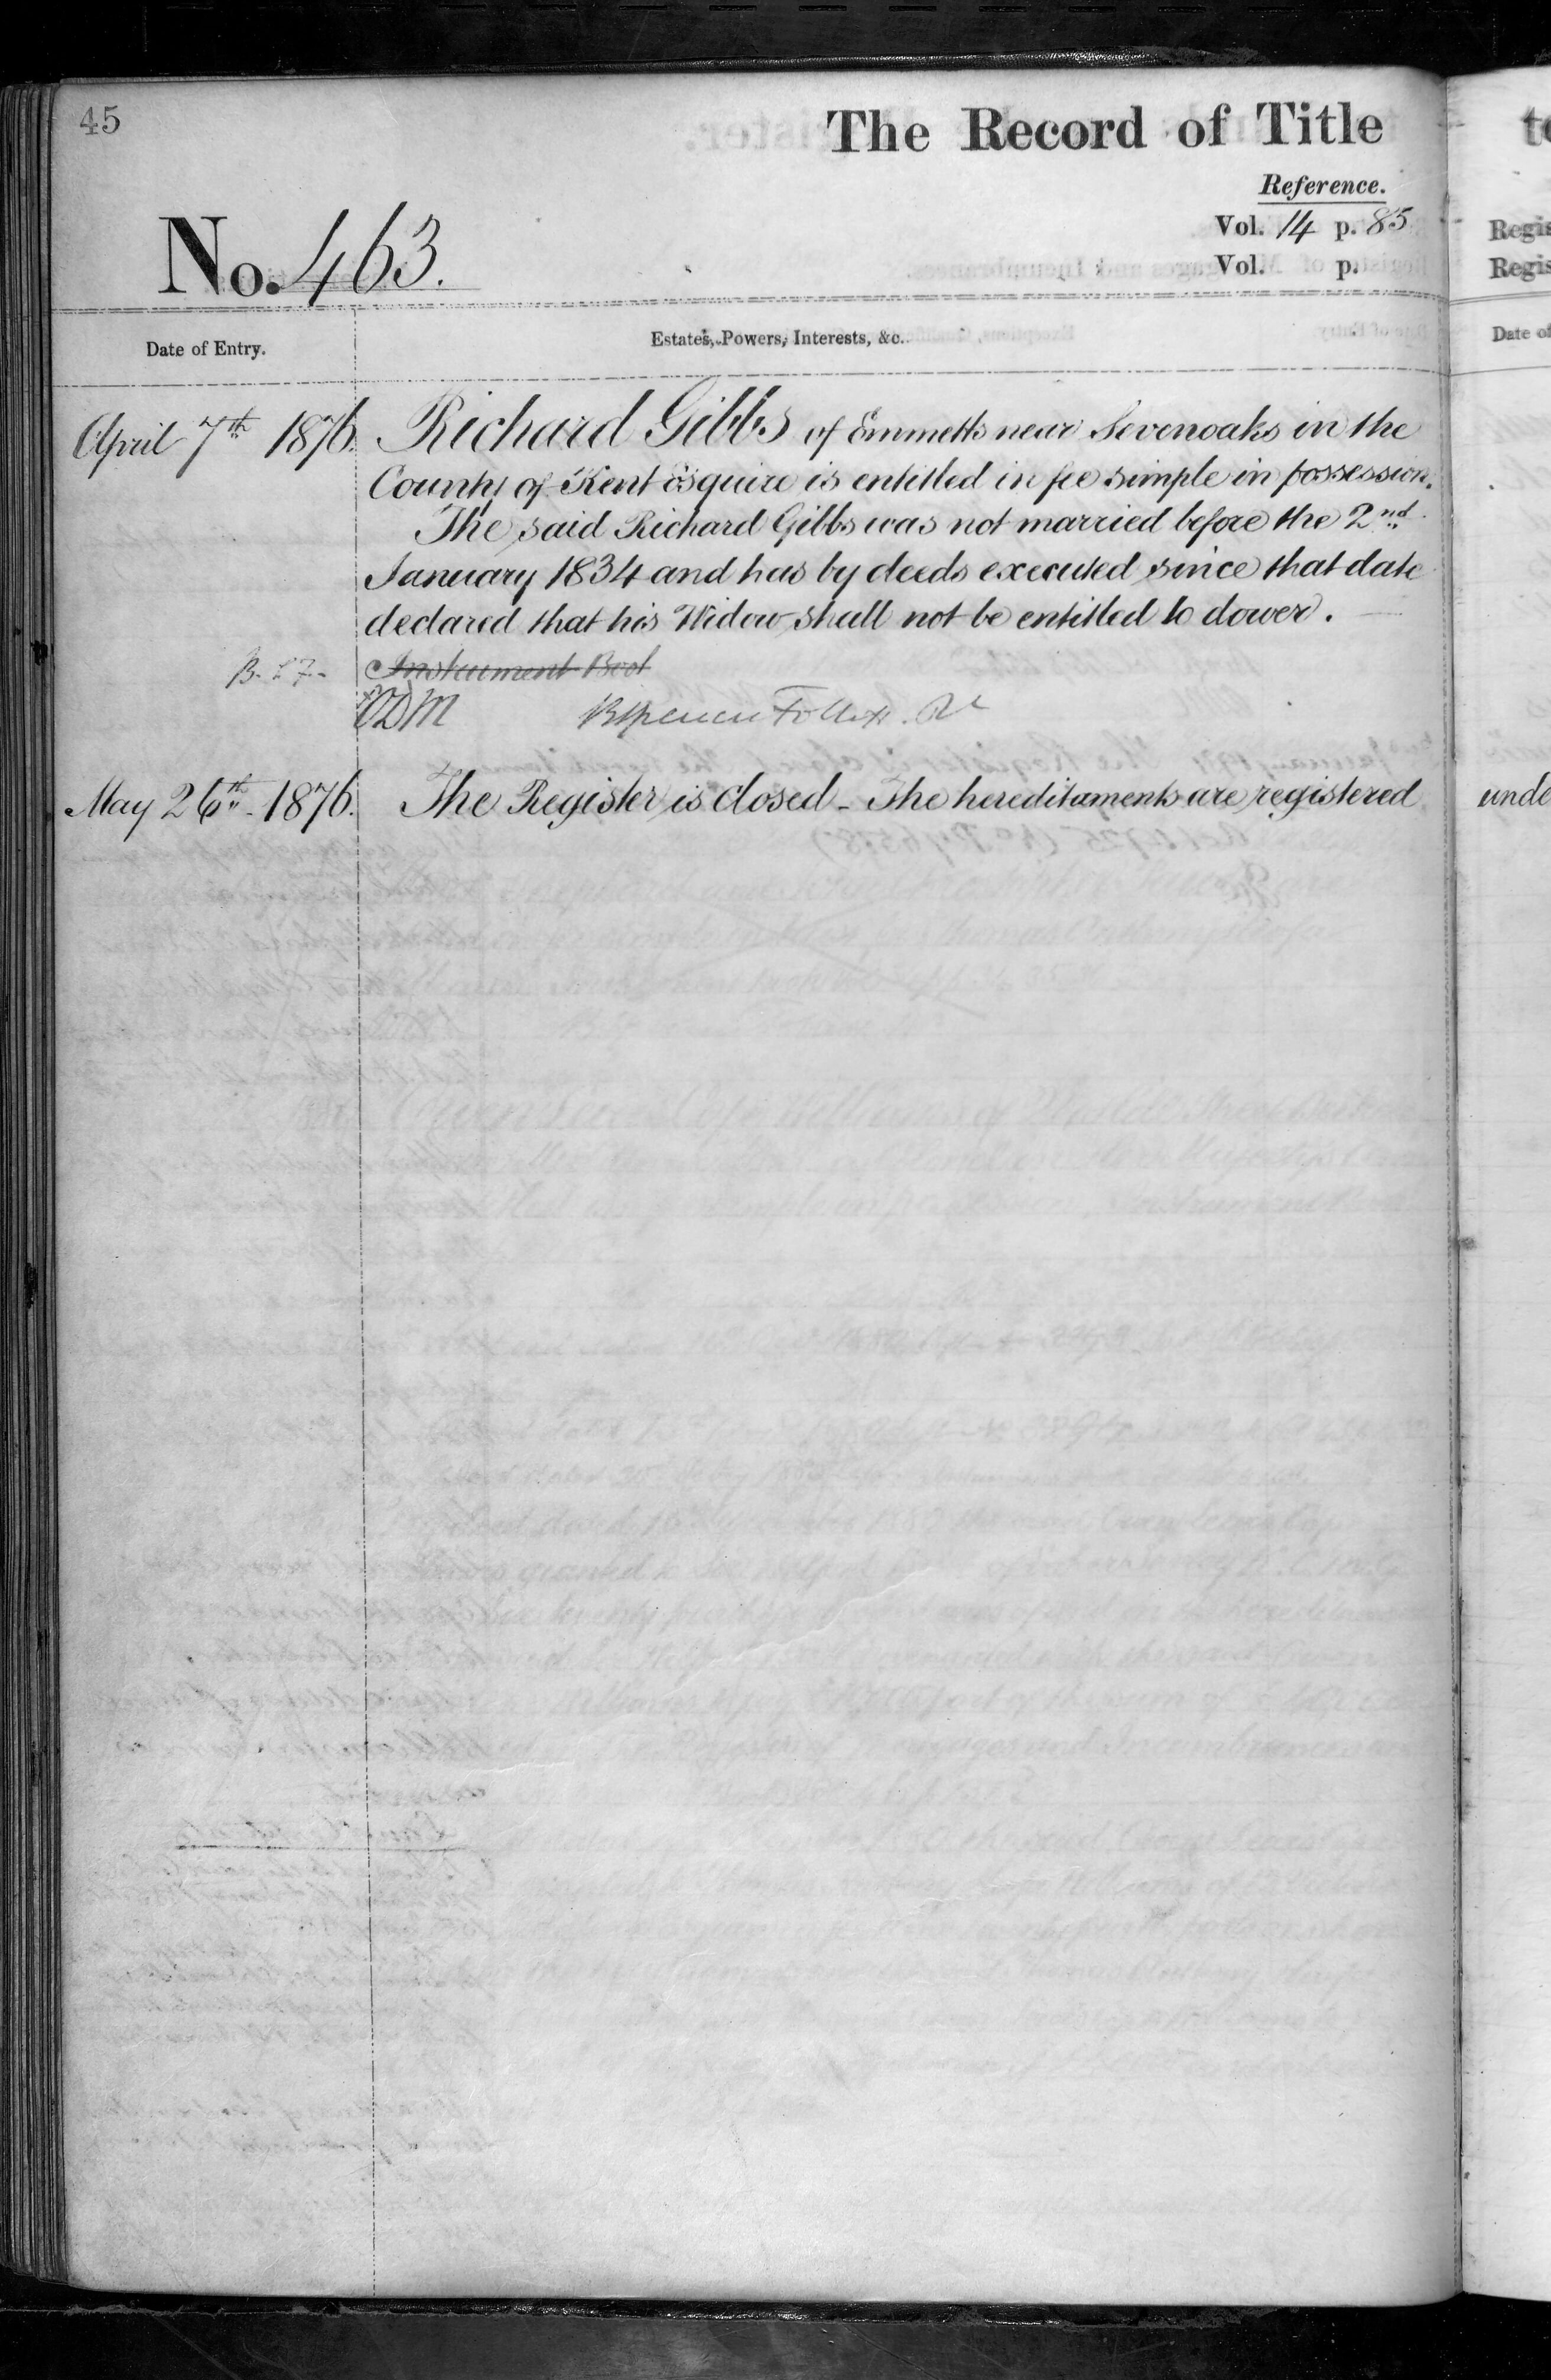 45
The Record of Title
Reference.
Vol. 14 p. 85
No. 463.
Vol. p.
Date of Entry.
Estates, Powers, Interests, &c.
April 7th 1876. Richard Gibbs of Emmetts near Sevenoaks in the
County of Kent Esquire is entitled in fee simple in possession.
The said Richard Gibbs was not married before the 2nd
January 1834 and has by deeds executed since that date
declared that his Widow shall not be entitled to dower.
Instrument
ODM Follett
May 26th 1876. The Register is closed - The hereditaments are registered
Regis
Regis
Date of
unde